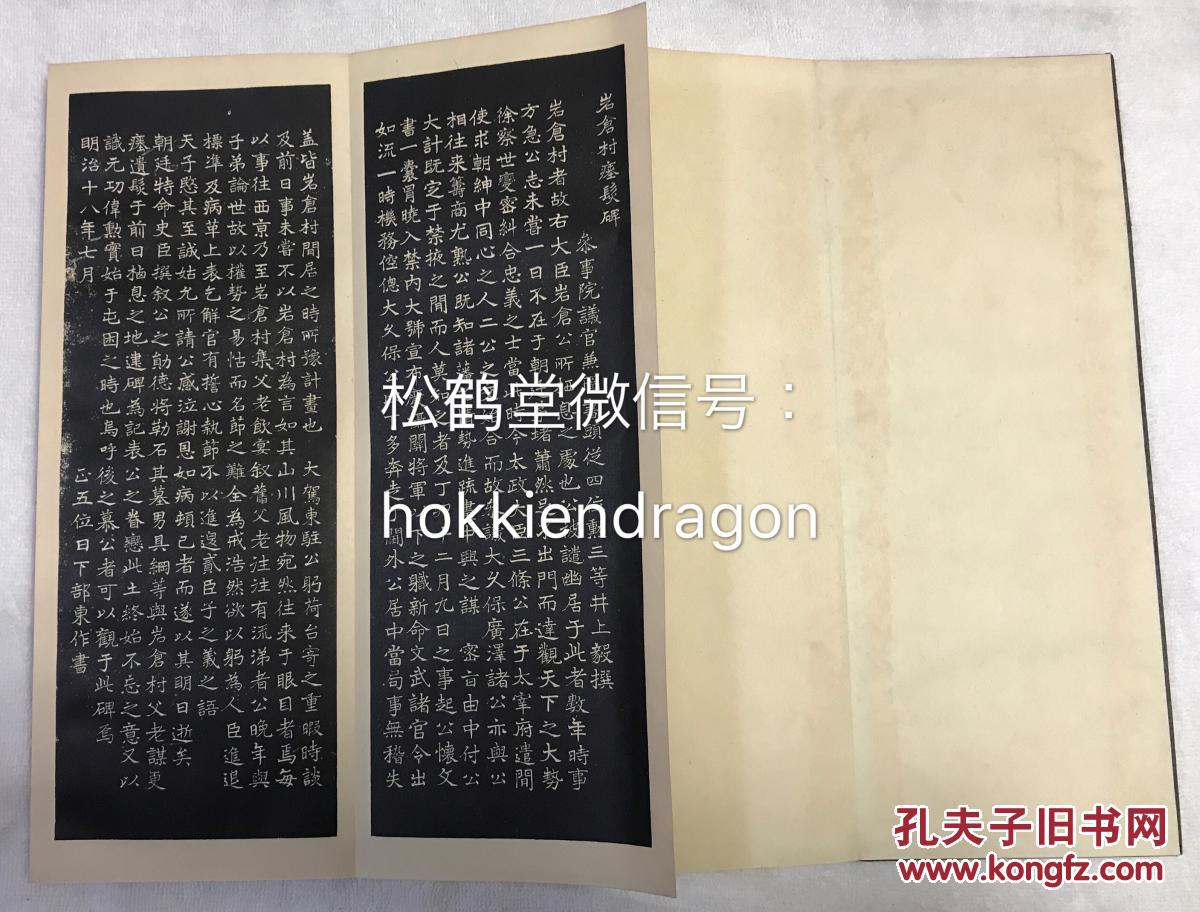 岩倉村瘞髪碑
參事院議官兼 頭從四位勲三等井上毅撰
岩倉村者故右大臣岩倉公所栖息之處也公 譴幽居于此者數年時事
方急公志未嘗一日不在于朝 堵蕭然 出門而達觀天下之大勢
徐察世變密糾合忠義之士當 時今太政大臣三條公在于太宰府遣間
使求朝紳中同心之人二公之 合而故 大久保廣澤諸公亦與公
相往来籌商尤熟公既知諸藩 勢進疏 中興之謀 密旨由中付公
大計既定于禁掖之間而人莫知之者及丁 二月九日之事起公懷文
書一囊冒曉入禁内大號宣布 關將軍 之職新命文武諸官令出
如流一時機務倥傯大久保 多奔走 間外公居中當局事無稽失
蓋皆岩倉村閒居之時所豫計畫也 大駕東駐公躬荷台寄之重暇時談
及前日事未嘗不以岩倉村為言如其山川風物宛然往来于眼目者焉每
以事往西京乃至岩倉村集父老飲宴叙舊父老往往有流涕者公晚年與
子弟論世故以權勢之易怙而名節之難全為戒浩然欲以躬為人臣進退
標準及病革上表乞解官有擔心執節不以進退貳臣子之義之語
天子愍其至誠姑允所請公感泣謝恩如病頓已者而遂以其明日逝矣
朝廷特命史臣撰叙公之勛德將勒石其墓男具綱等與岩倉村父老謀更
瘞遺髪于前日栖息之地建碑為記表公之眷戀此土終始不忘之意又以
識元功偉勲實始于屯困之時也烏呼後之慕公者可以觀于此碑焉
明治十八年七月 正五位日下部東作書
松鹤堂微信号：
hokkiendragon
孔夫子旧书网
www.kongfz.com